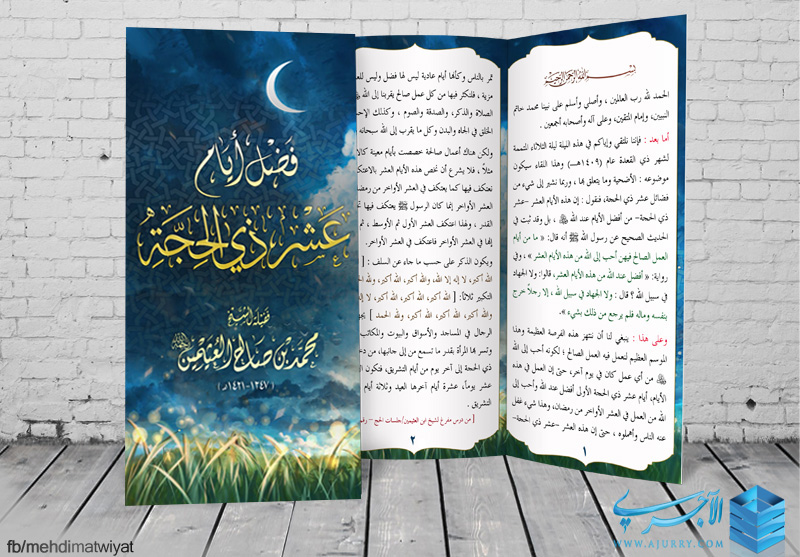 فضل أيام
عشر ذي الحجة
فضيلة الشيخ
محمد بن صالح العثيمين
(١٣٤٧-١٤٢١هـ)
بسم الله الرحمن الرحيم
الحمد لله رب العالمين ، وأصلي وأسلم على نبينا محمد خاتم
النبيين، وإمام المتقين، وعلى آله وأصحابه أجمعين .
أما بعد : فإننا نلتقي وإياكم في هذه الليلة ليلة الثلاثاء المتممة
لشهر ذي القعدة عام (١٤٠٩هـ) وهذا اللقاء سيكون
موضوعه : الأضحية وما يتعلق بها ، وربما نشير إلى شيء من
فضائل عشر ذي الحجة، فنقول : إن هذه الأيام العشر –عشر
ذي الحجة– من أفضل الأيام عند الله ﷻ ، بل وقد ثبت في
الحديث الصحيح عن رسول الله ﷺ أنه قال: « ما من أيام
العمل الصالح فيهن أحب إلى الله من هذه الأيام العشر » ، وفي
رواية: « أفضل عند الله من هذه الأيام العشر، قالوا: ولا الجهاد
في سبيل الله ؟ قال : ولا الجهاد في سبيل الله ، إلا رجلاً خرج
بنفسه وماله فلم يرجع من ذلك بشيء ».
وعلى هذا : ينبغي لنا أن ننتهز هذه الفرصة العظيمة وهذا
الموسم العظيم لنعمل فيه العمل الصالح ؛ لكونه أحب إلى الله
ﷻ من أي عمل كان في يوم آخر، حتى إن العمل في هذه
الأيام، أيام عشر ذي الحجة الأول أفضل عند الله وأحب إلى
الله من العمل في العشر الأواخر من رمضان، وهذا شيء غفل
عنه الناس وأهملوه ، حتى إن هذه العشر –عشر ذي الحجة–
١
تمر بالناس وكأنها أيام عادية ليس لها فضل وليس للعـ
مزية ، فلنكثر فيها من كل عمل صالح يقربنا إلى الله
الصلاة والذكر، والصدقة والصوم ، وكذلك الإحـ
الخلق في الجاه والبدن وكل ما يقرب إلى الله سبحانه
ولكن هناك أعمال صالحة خصصت بأيام معينة كالا
مثلاً ، فلا يشرع أن نخص هذه الأيام العشر بالاعتكـ
نعتكف فيها كما يعتكف في العشر الأواخر من رمضـ
العشر الأواخر إنما كان الرسول ﷺ يعتكف فيها
القدر . ولهذا اعتكف العشر الأول ثم الأوسط ، ثم
إنها في العشر الأواخر فاعتكف في العشر الأواخر.
ويكون الذكر على حسب ما جاء عن السلف : [
الله أكبر، لا إله إلا الله، والله أكبر، الله أكبر، ولله الحـ
التكبير ثلاثاً: [ الله أكبر، الله أكبر، الله أكبر، لا إله
والله أكبر، الله أكبر، الله أكبر، ولله الحمد ]
الرجال في المساجد والأسواق والبيوت والمكاتب
وتسر بها المرأة بقدر ما تسمع من إلى جانبها، من دخـ
ذي الحجة إلى آخر يوم من أيام التشريق، فتكون الـ
عشر يوماً، عشرة أيام آخرها العيد وثلاثة أيام
التشريق .
[ من دروس مفرغ للشيخ ابن العثيمين/جلسات الحج – رقم
٢
fb/mehdimatwiyat
الآجري
WWW.AJURRY.COM